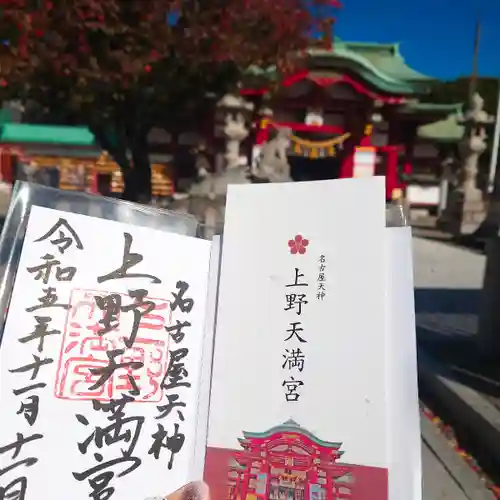 名古屋天神
上野天満宮
令和五年十一月十一日
名古屋天神
上野天満宮